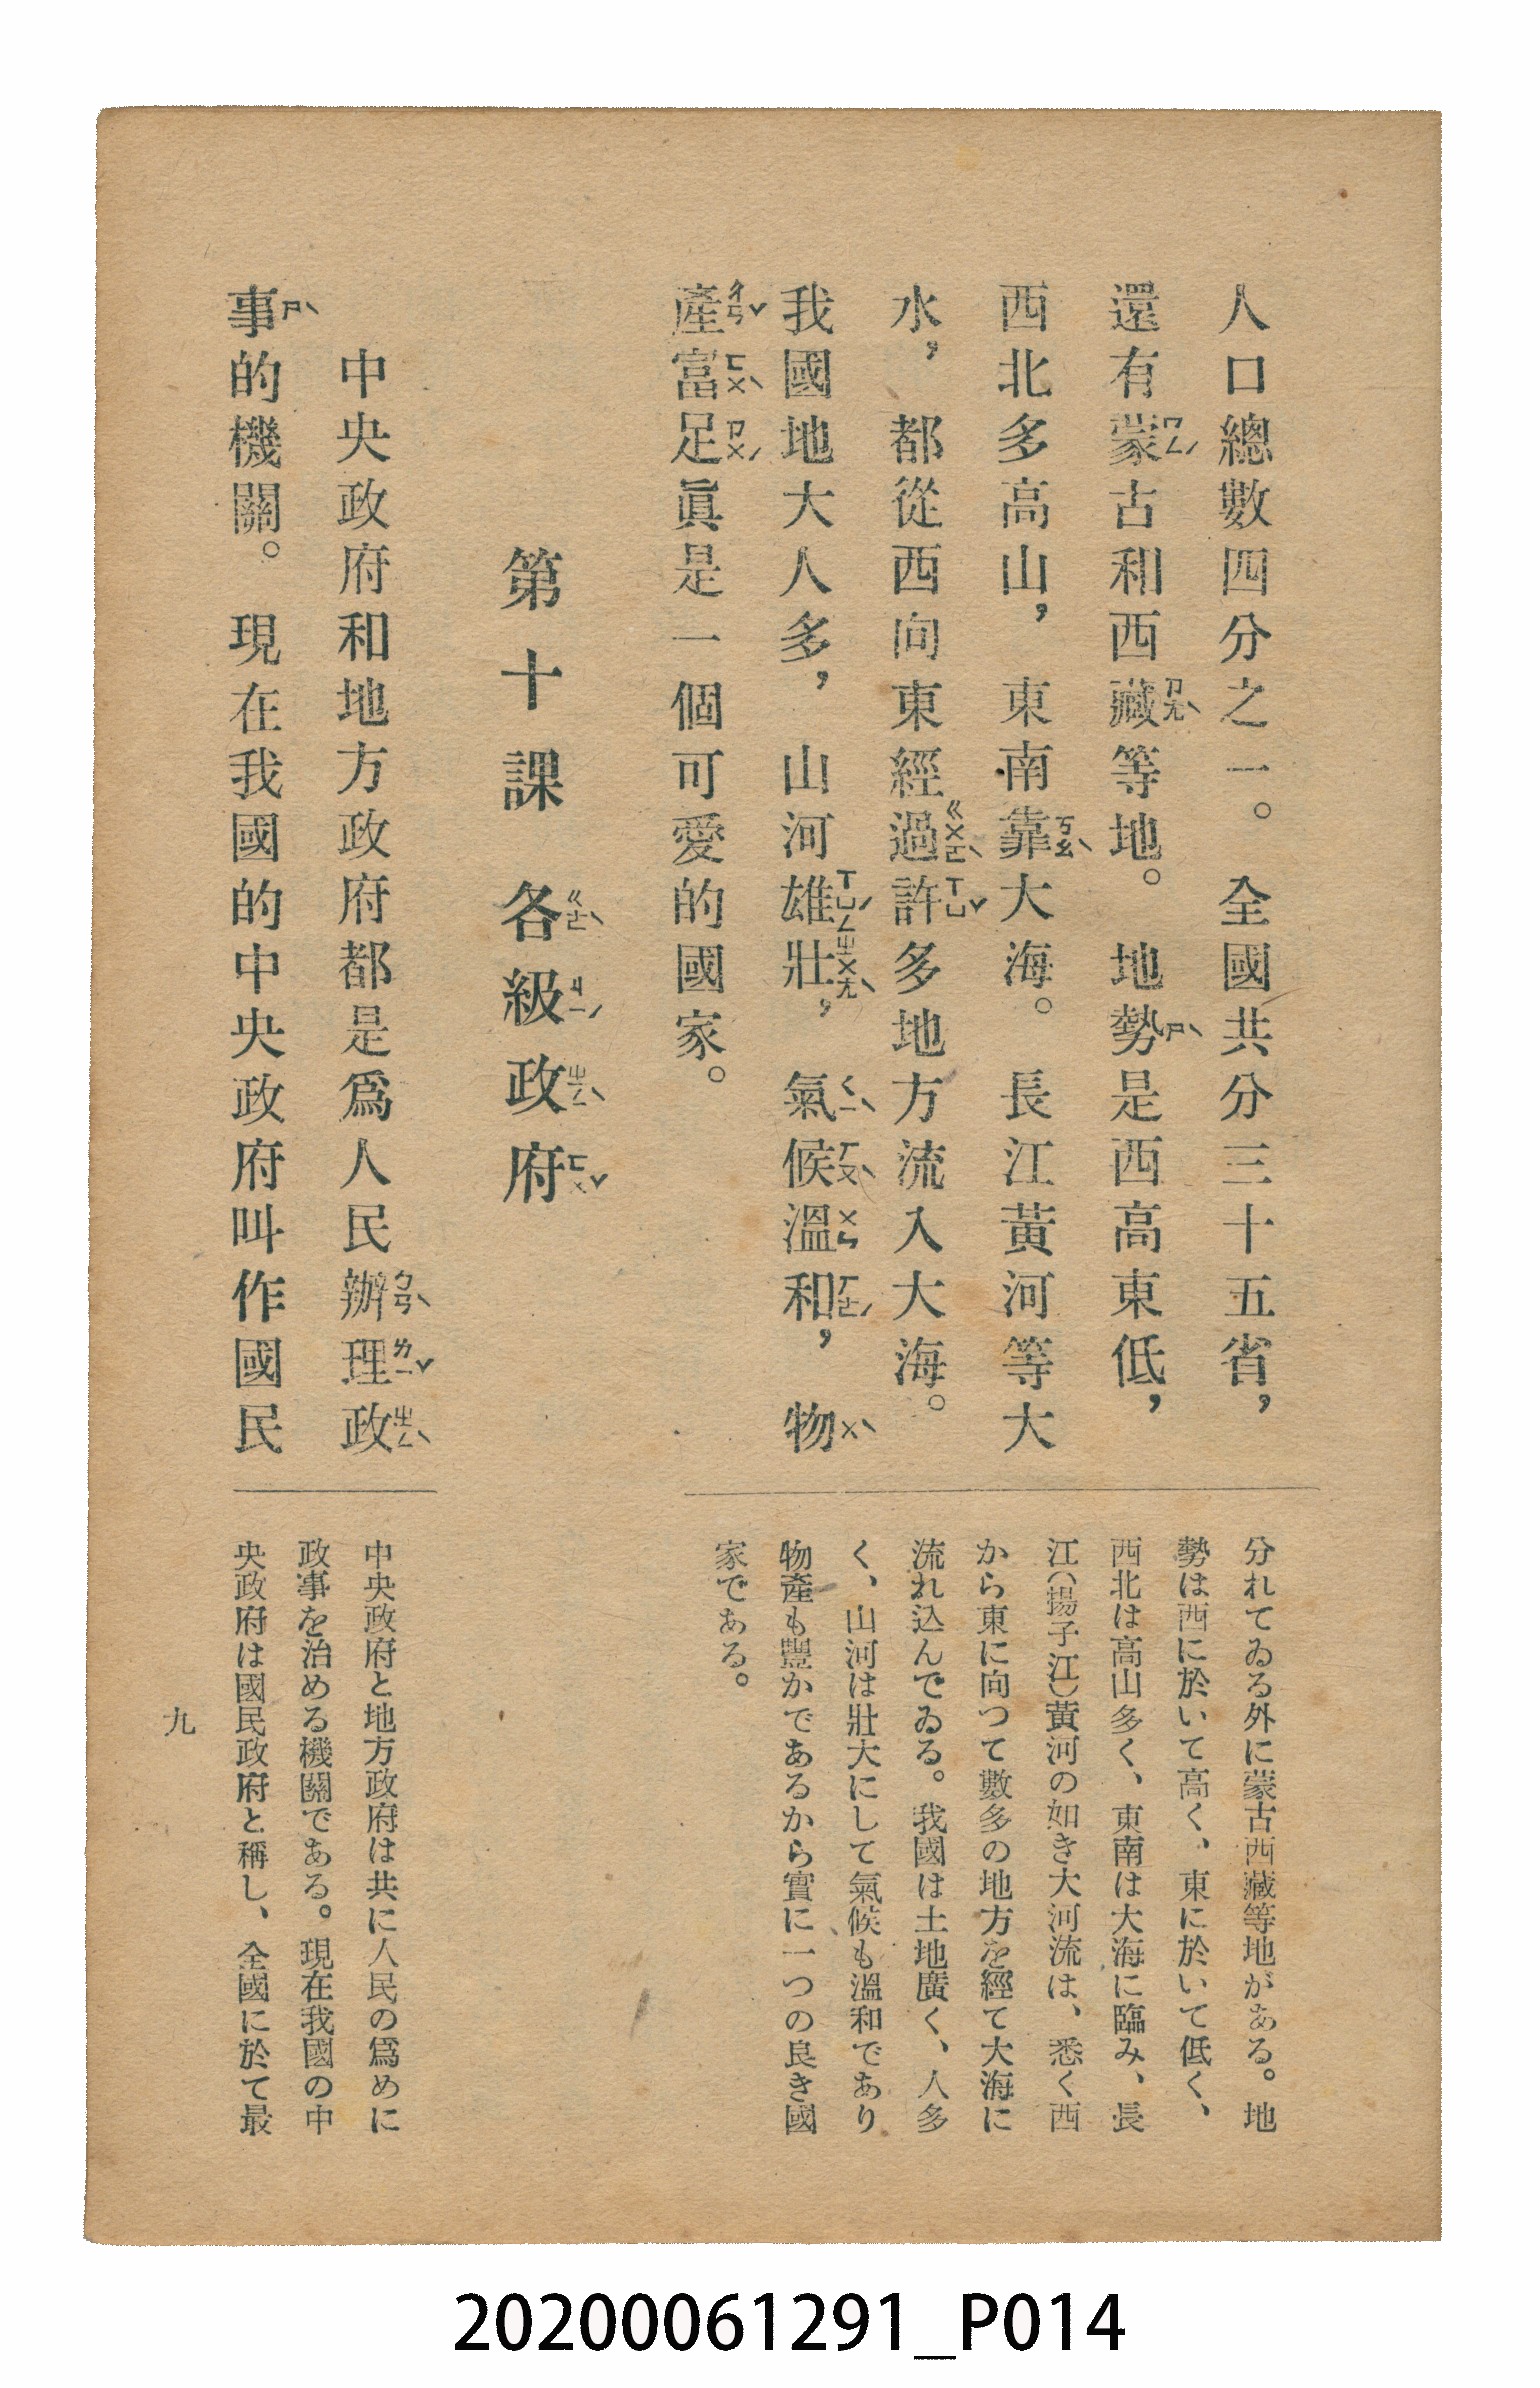 人口總數四分之一。全國共分三十五省，
還有蒙ㄇㄥˊ古和西藏ㄗㄤˋ等地。地勢ㄕˋ是西高東低，
西北多高山，東南靠ㄎㄠˋ大海。長江黃河等大
水，都從西向東經過ㄍㄨㄛˋ許ㄒㄩˇ多地方流入大海。
我國地大人多，山河雄ㄒㄩㄥˊ壯ㄓㄨㄤˋ，氣ㄑㄧˋ候ㄏㄡˋ溫ㄨㄣ和ㄏㄜˊ，物ㄨˋ
產ㄔㄢˇ富ㄈㄨˋ足ㄗㄨˊ眞是一個可愛的國家。
第十課 各ㄍㄜˋ級ㄐㄧˊ政ㄓㄥˋ府ㄈㄨˇ
中央政府和地方政府都是爲人民辦ㄅㄢˋ理ㄌㄧˇ政ㄓㄥˋ
事ㄕˋ的機關。現在我國的中央政府叫作國民
分れてゐる外に蒙古西藏等地がある。地
勢は西に於いて高く、東に於いて低く、
西北は高山多く、東南は大海に臨み、長
江（揚子江）黃河の如き大河流は、悉く西
から東に向つて數多の地方を經て大海に
流れ込んでゐる。我國は土地廣く、人多
く、山河は壯大にして氣候も溫和であり
物產も豐かであるから實に一つの良き國
家である。
中央政府と地方政府は共に人民の爲めに
政事を治める機關である。現在我國の中
央政府は國民政府と稱し、全國に於て最
九
20200061291_P014